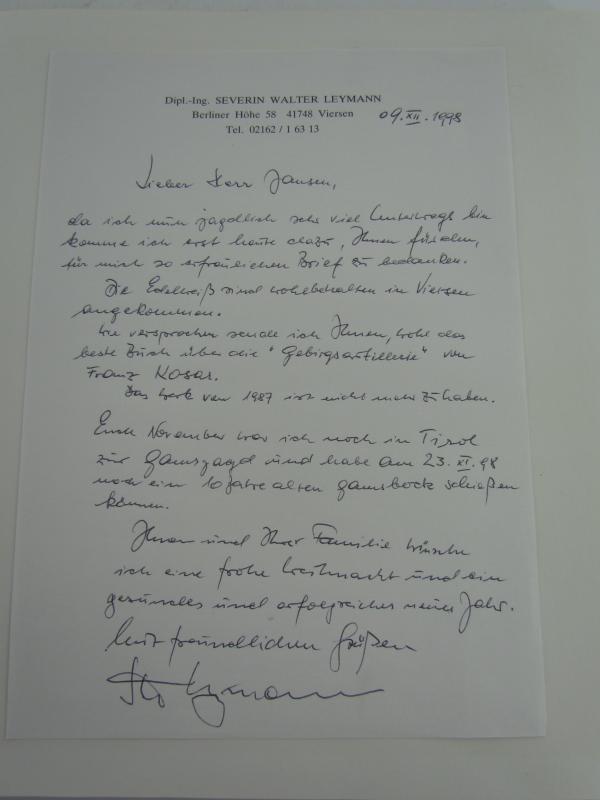 Dipl.-Ing. SEVERIN WALTER LEYMANN
Berliner Höhe 58 41748 Viersen
Tel. 02162 / 1 63 13
09.XII.1998
Lieber Herr Jansen,
da ich nun jagdlich sehr viel unterwegs bin
komme ich erst heute dazu, Ihnen für den,
für mich so erfreulichen Brief zu bedanken.
Die Edelweiß sind wohlbehalten in Viersen
angekommen.
Wie versprochen sende ich Ihnen, wohl das
beste Buch über die "Gebirgsartillerie" von
Franz Kosar.
Das Werk von 1987 ist nicht mehr zu haben.
Ende November war ich noch in Tirol
zur Gamsjagd und habe am 23.XI.98
noch ein 10 Jahre alten Gamsbock schießen
können.
Ihnen und Ihrer Familie wünsche
ich eine frohe Weihnacht und ein
gesundes und erfolgreiches neues Jahr.
Mit freundlichen Grüßen
Leymann